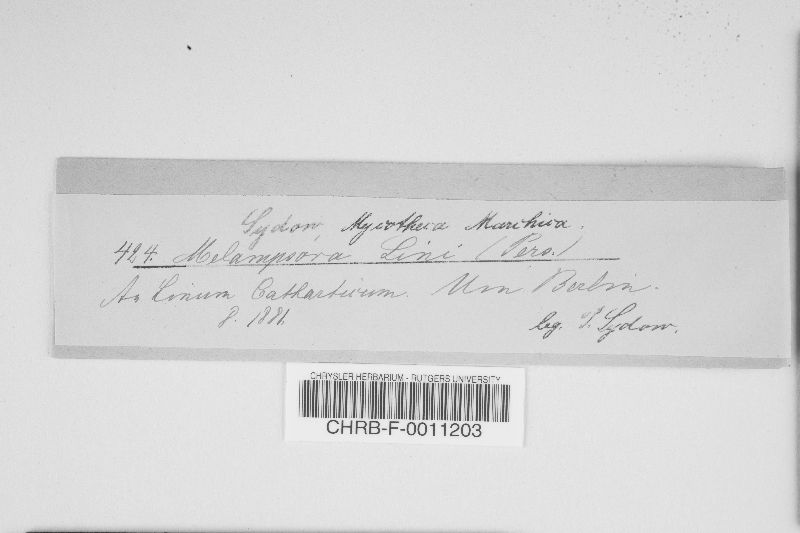 Sydow, Mycotheca Marchica.
424. Melampsora Lini (Pers.)
An Linum Catharticum. Um Berlin.
8. 1881.
leg. P. Sydow.
CHRYSLER HERBARIUM - RUTGERS UNIVERSITY
CHRB-F-0011203